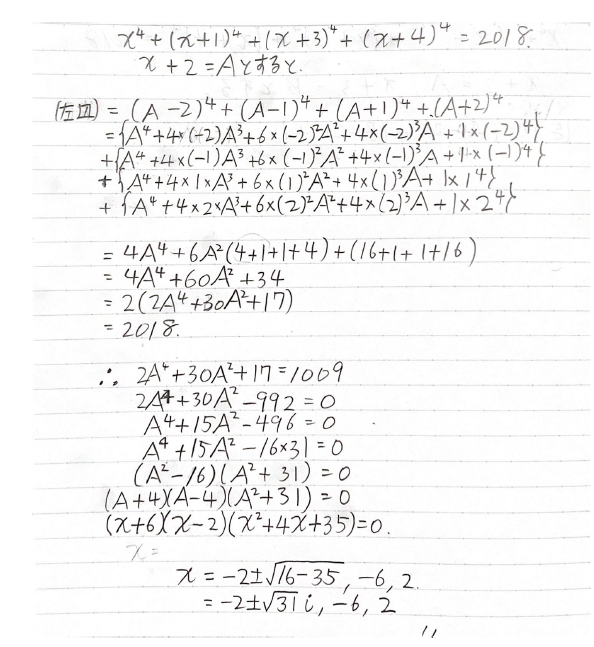 x⁴+(x+1)⁴+(x+3)⁴+(x+4)⁴=2018.
x+2=Aとすると.
(左辺)=(A-2)⁴+(A-1)⁴+(A+1)⁴+(A+2)⁴
={A⁴+4×(-2)A³+6×(-2)²A²+4×(-2)³A+1×(-2)⁴}
+{A⁴+4×(-1)A³+6×(-1)²A²+4×(-1)³A+1×(-1)⁴}
+{A⁴+4×1×A³+6×(1)²A²+4×(1)³A+1×1⁴}
+{A⁴+4×2×A³+6×(2)²A²+4×(2)³A+1×2⁴}
=4A⁴+6A²(4+1+1+4)+(16+1+1+16)
=4A⁴+60A²+34
=2(2A⁴+30A²+17)
=2018.
∴ 2A⁴+30A²+17=1009
2A⁴+30A²-992=0
A⁴+15A²-496=0
A⁴+15A²-16×31=0
(A²-16)(A²+31)=0
(A+4)(A-4)(A²+31)=0
(x+6)(x-2)(x²+4x+35)=0.
x=
x=-2±√16-35, -6, 2.
=-2±√31 i, -6, 2